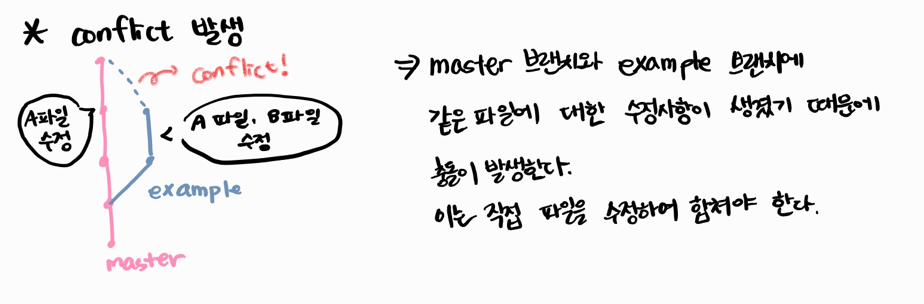 * conflict 발생
conflict!
A파일
수정
A 파일, B파일
수정
example
master
⇒ master 브랜치와 example 브랜치에
같은 파일에 대한 수정사항이 생겼기 때문에
충돌이 발생한다.
이는 직접 파일을 수정하여 합쳐야 한다.